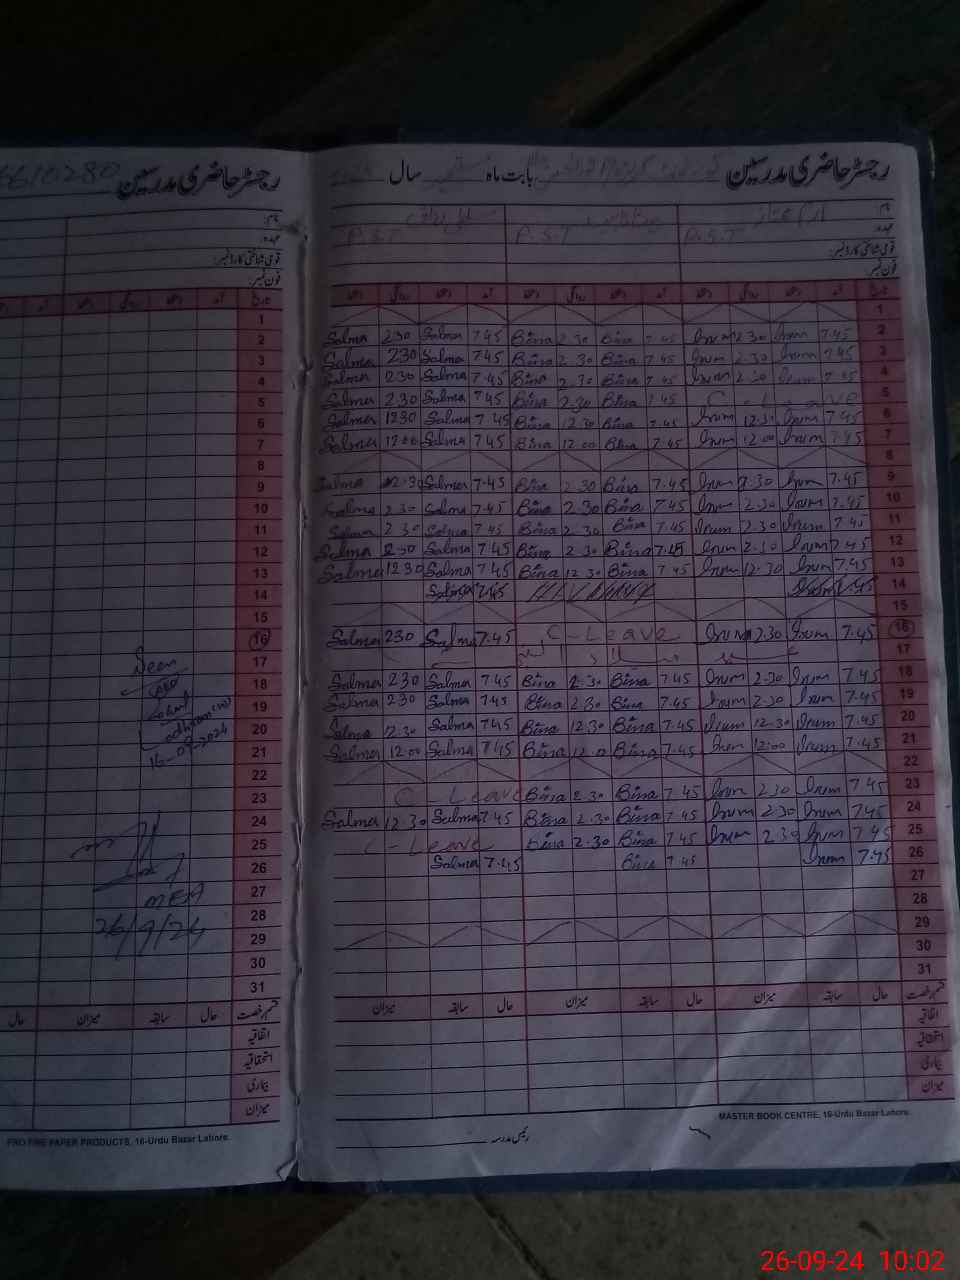 رجسٹر حاضری مدرسین بابت ماہ ستمبر سال
نام:
عہدہ: P.S.T P.S.T P.S.T
قومی شناختی کارڈ نمبر:
فون نمبر:
تاریخ آمد دستخط روانگی دستخط آمد دستخط روانگی دستخط آمد دستخط روانگی دستخط
1
Salma 2.30 Salma 7.45 Bina 2.30 Bina 7.45 Irum 2.30 Irum 7.45 2
Salma 2.30 Salma 7.45 Bina 2.30 Bina 7.45 Irum 2.30 Irum 7.45 3
Salma 2.30 Salma 7.45 Bina 2.30 Bina 7.45 Irum 2.30 Irum 7.45 4
Salma 2.30 Salma 7.45 Bina 2.30 Bina 7.45 C-Leave 5
Salma 12.30 Salma 7.45 Bina 12.30 Bina 7.45 Irum 12.30 Irum 7.45 6
Salma 12.00 Salma 7.45 Bina 12.00 Bina 7.45 Irum 12.00 Irum 7.45 7
8
Salma 2.30 Salma 7.45 Bina 2.30 Bina 7.45 Irum 2.30 Irum 7.45 9
Salma 2.30 Salma 7.45 Bina 2.30 Bina 7.45 Irum 2.30 Irum 7.45 10
Salma 2.30 Salma 7.45 Bina 2.30 Bina 7.45 Irum 2.30 Irum 7.45 11
Salma 2.30 Salma 7.45 Bina 2.30 Bina 7.45 Irum 2.30 Irum 7.45 12
Salma 12.30 Salma 7.45 Bina 12.30 Bina 7.45 Irum 12.30 Irum 7.45 13
Salma 7.45 Irum 7.45 14
15
Salma 2.30 Salma 7.45 C-Leave Irum 2.30 Irum 7.45 16
17
Salma 2.30 Salma 7.45 Bina 2.30 Bina 7.45 Irum 2.30 Irum 7.45 18
Salma 2.30 Salma 7.45 Bina 2.30 Bina 7.45 Irum 2.30 Irum 7.45 19
Salma 12.30 Salma 7.45 Bina 12.30 Bina 7.45 Irum 12.30 Irum 7.45 20
Salma 12.00 Salma 7.45 Bina 12.0 Bina 7.45 Irum 12.00 Irum 7.45 21
22
C-Leave Bina 2.30 Bina 7.45 Irum 2.30 Irum 7.45 23
Salma 12.30 Salma 7.45 Bina 2.30 Bina 7.45 Irum 2.30 Irum 7.45 24
C-Leave Bina 2.30 Bina 7.45 Irum 2.30 Irum 7.45 25
Salma 7.45 Bina 7.45 Irum 7.45 26
27
28
29
30
31
قسم رخصت حال سابقہ میزان حال سابقہ میزان
اتفاقیہ
استحقاقیہ
بیماری
میزان
MASTER BOOK CENTRE, 16-Urdu Bazar Lahore.
رئیس مدرسہ
رجسٹر حاضری مدرسین 6610280
نام:
عہدہ:
قومی شناختی کارڈ نمبر:
فون نمبر:
تاریخ آمد دستخط روانگی دستخط آمد
1
2
3
4
5
6
7
8
9
10
11
12
13
14
15
16
Seen 17
18
19
20
16-09-2024 21
22
23
24
25
26
MEA 27
26/9/24 28
29
30
31
قسم رخصت حال سابقہ میزان حال
اتفاقیہ
استحقاقیہ
بیماری
میزان
PRO FINE PAPER PRODUCTS, 16-Urdu Bazar Lahore.
26-09-24 10:02